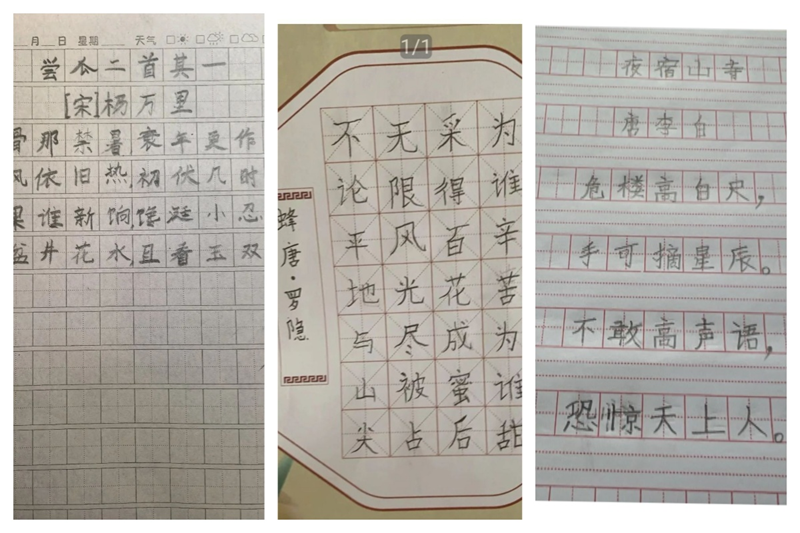 月 日 星期 天气
尝瓜二首其一
[宋]杨万里
骨那禁暑,衰年更作
风依旧热,初伏几时
果谁新饷,馋涎小忍
盆井花水,且看玉双
1/1
蜂 唐·罗隐
不论平地与山尖
无限风光尽被占
采得百花成蜜后
为谁辛苦为谁甜
夜宿山寺
唐李白
危楼高白尺,
手可摘星辰。
不敢高声语,
恐惊天上人。